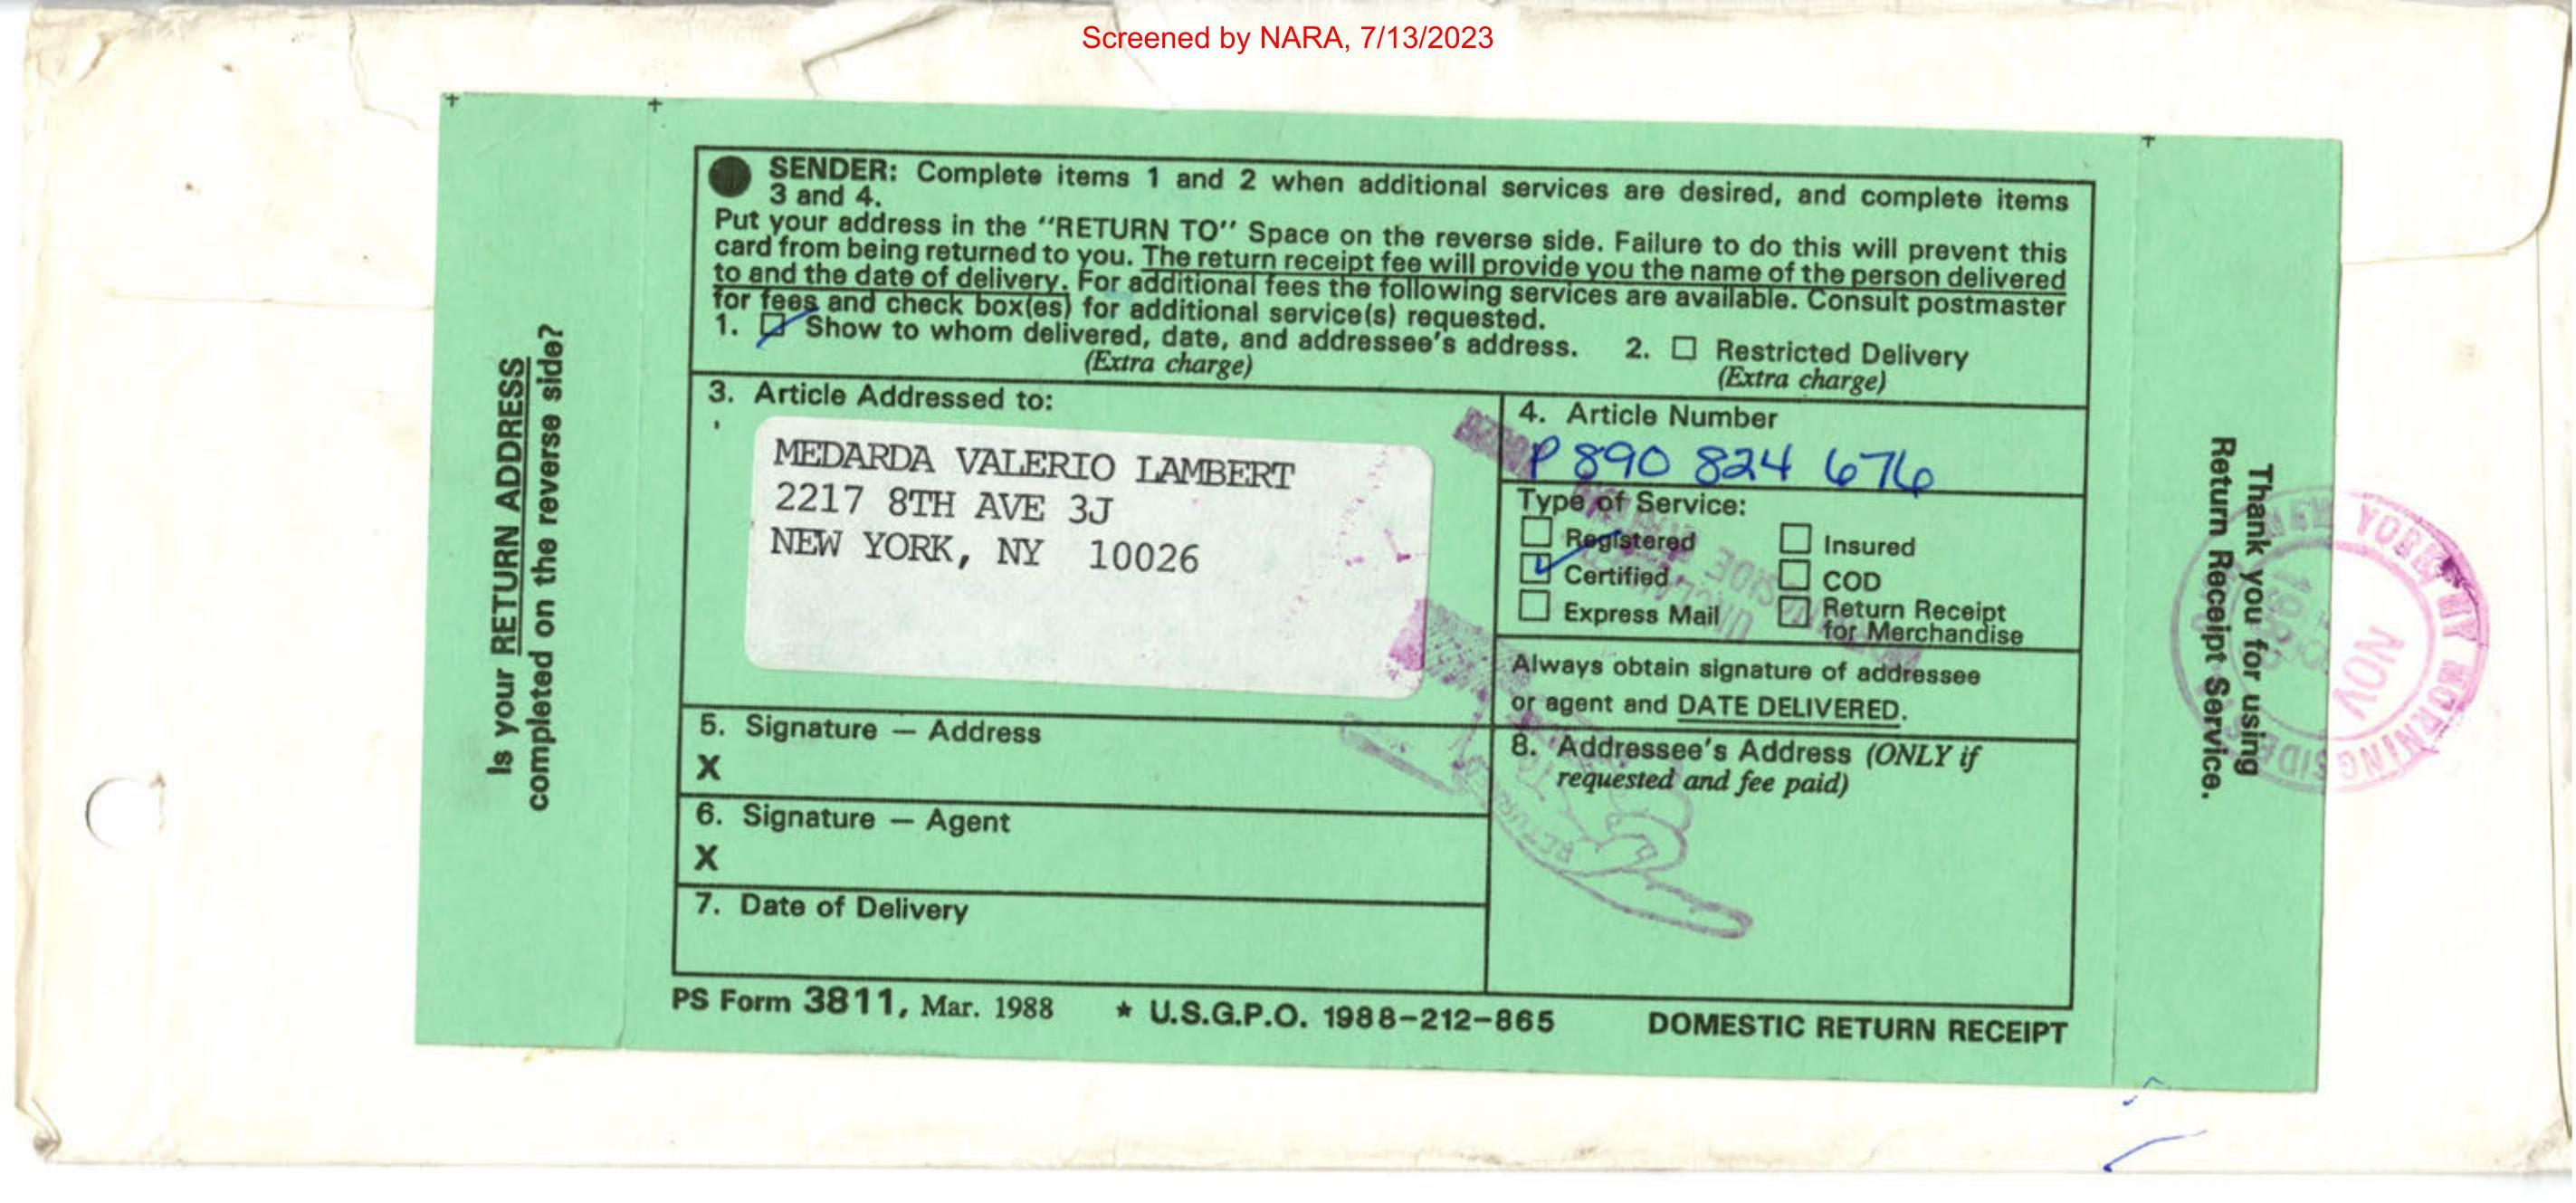 Screened by NARA, 7/13/2023
Is your RETURN ADDRESS
completed on the reverse side?
SENDER: Complete items 1 and 2 when additional services are desired, and complete items
3 and 4.
Put your address in the "RETURN TO" Space on the reverse side. Failure to do this will prevent this
card from being returned to you. The return receipt fee will provide you the name of the person delivered
to and the date of delivery. For additional fees the following services are available. Consult postmaster
for fees and check box(es) for additional service(s) requested.
1. Show to whom delivered, date, and addressee's address. 2. Restricted Delivery
(Extra charge) (Extra charge)
3. Article Addressed to:
MEDARDA VALERIO LAMBERT
2217 8TH AVE 3J
NEW YORK, NY 10026
4. Article Number
P 890 824 676
Type of Service:
Registered Insured
Certified COD
Express Mail Return Receipt
for Merchandise
Always obtain signature of addressee
or agent and DATE DELIVERED.
5. Signature — Address
X
6. Signature — Agent
X
7. Date of Delivery
8. Addressee's Address (ONLY if
requested and fee paid)
PS Form 3811, Mar. 1988 ★ U.S.G.P.O. 1988-212-865 DOMESTIC RETURN RECEIPT
Thank you for using
Return Receipt Service.
NEW YORK NY MORNINGSIDE
NOV